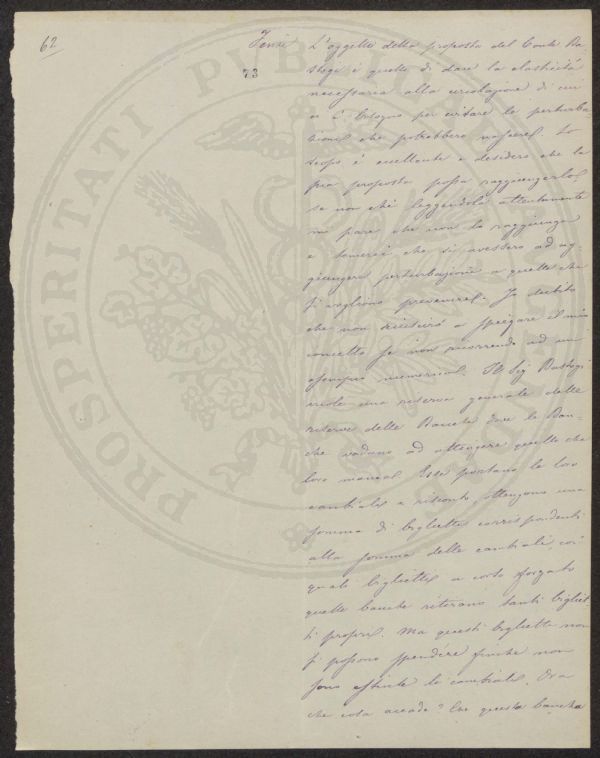 62
73
Fenzi L'oggetto della proposta del Conte Ba-
stogi è quello di dare la elasticità
necessaria alla circolazione di cui
vi è bisogno per evitare le perturba-
zioni che potrebbero nascere. Lo
scopo è eccellente e desidero che la
sua proposta possa raggiungerlo,
se non che leggendola attentamente
mi pare che non lo raggiunga
e temerei che si avessero ad ag-
giungere perturbazioni a quelle che
si vogliono prevenire. Io dubito
che non riuscirò a spiegare il mio
concetto se non ricorrendo ad un
esempio numerico. Il Sig Bastogi
vuole una riserva generale delle
riserve delle Banche dove le Ban-
che vadano ad attingere quello che
loro manca. Esse portano le loro
cambiali a risconto, ottengono una
somma di biglietti corrispondenti
alla somma delle cambiali, coi
quali biglietti a corso forzato
quelle banche ritirano tanti bigliet
ti proprii. Ma questi biglietti non
si possono spendere finchè non
sono estinte le cambiali. Ora
che cosa accade? Che questa banca
PROSPERITATI PUBLICAE